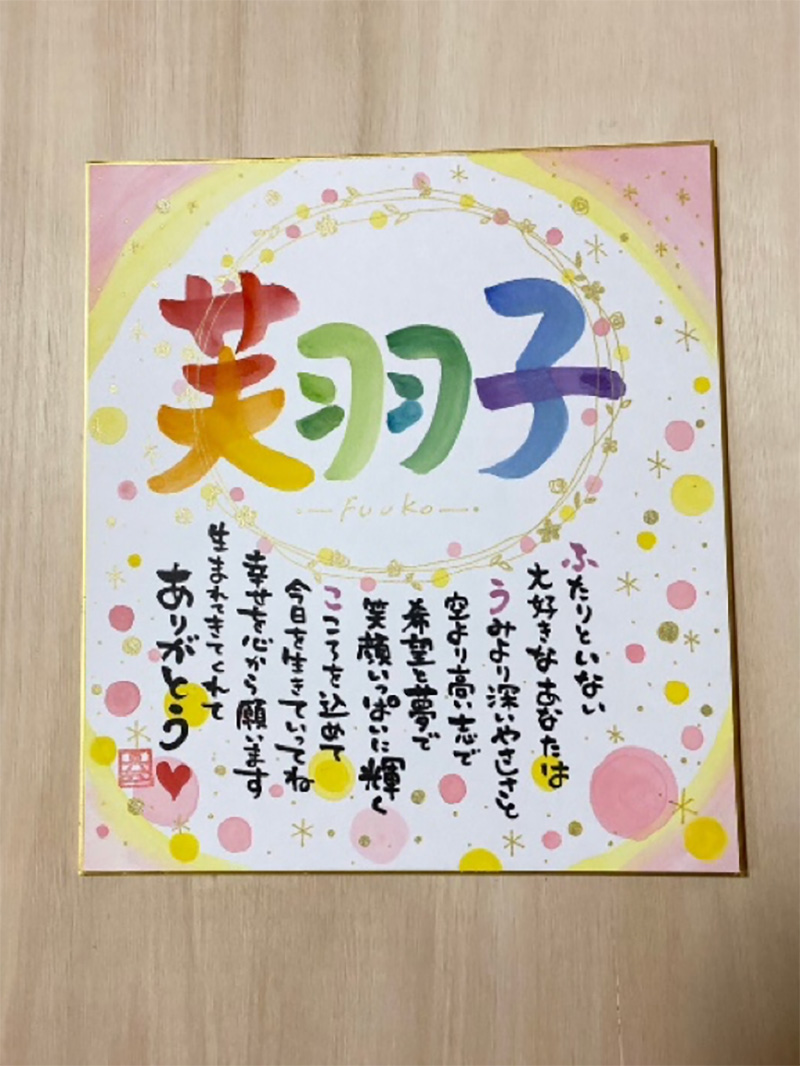 芙羽子
Fuuko
ふたりといない
大好きなあなたは
うみより深いやさしさと
空より高い志で
希望と夢で
笑顔いっぱいに輝く
こころを込めて
今日を生きていってね
幸せを心から願います
生まれてきてくれて
ありがとう♥